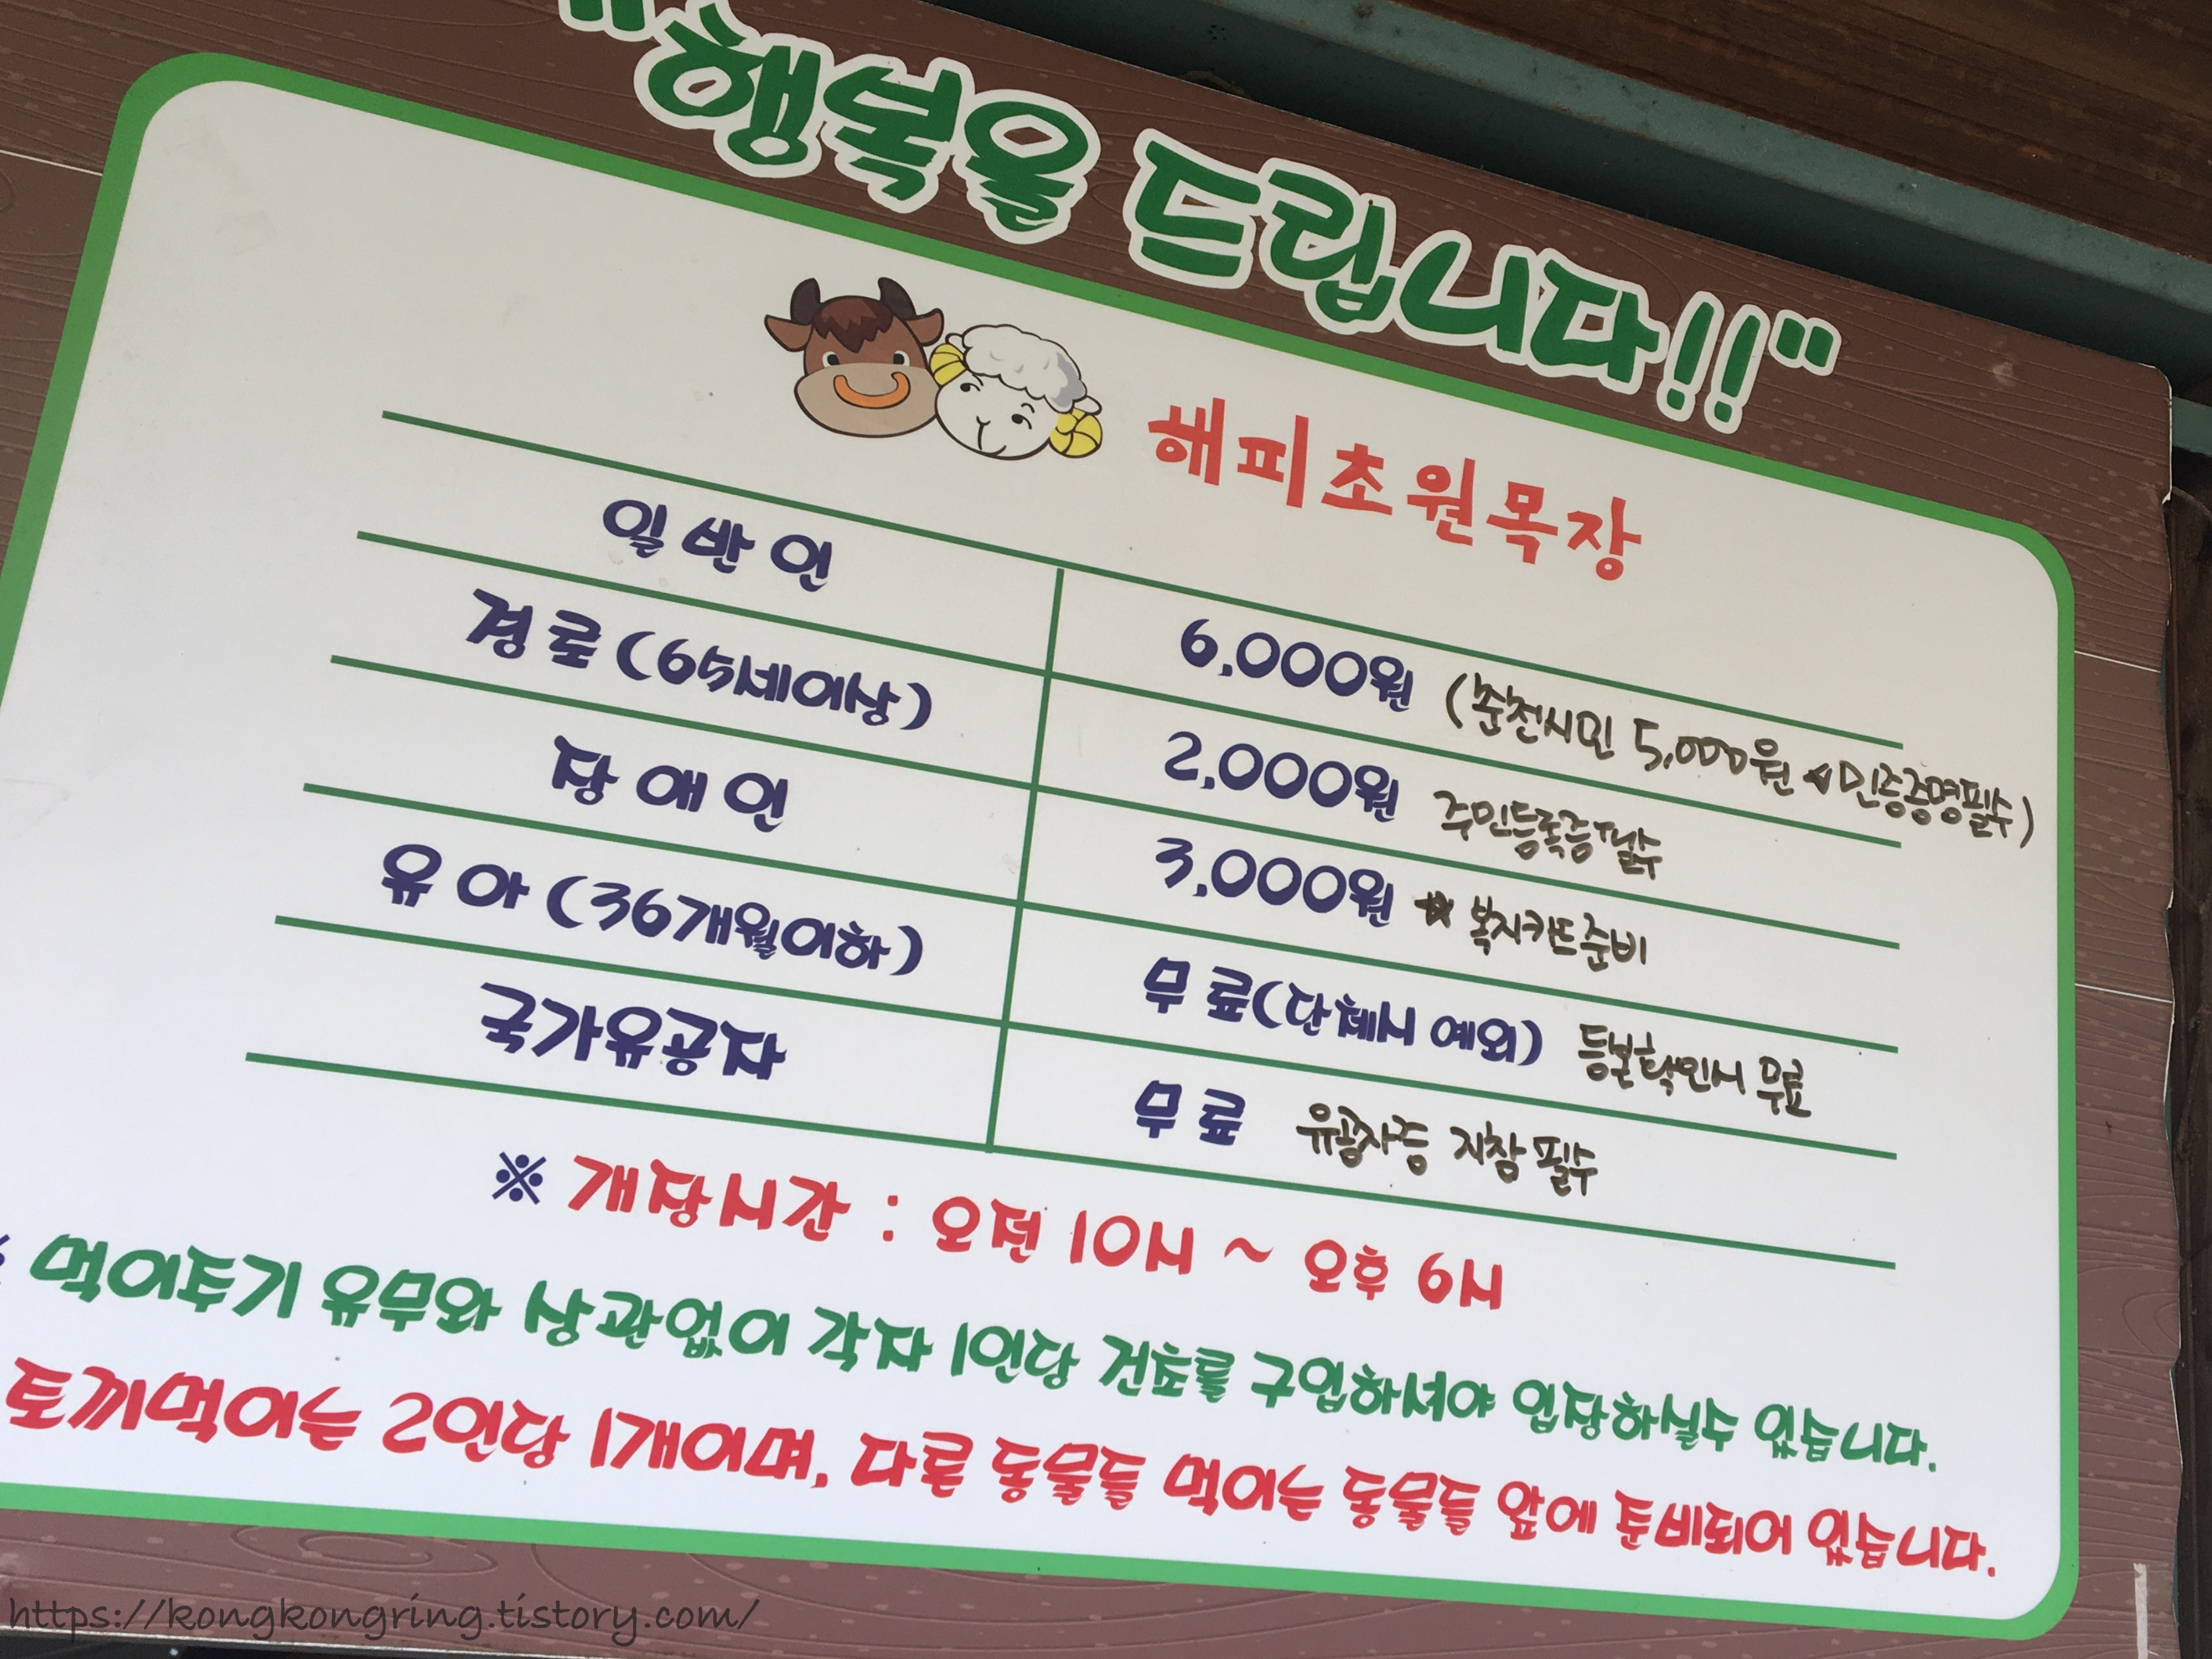 "행복을 드립니다!!"
해피초원목장
일반인 6,000원 (춘천시민 5,000원 ★민증증명필수)
경로(65세이상) 2,000원 주민등록증필수
장애인 3,000원 ★ 복지카드준비
유아(36개월이하) 무료(단체시 예외) 등본확인시 무료
국가유공자 무료 유공자증 지참 필수
※ 개장시간 : 오전 10시 ~ 오후 6시
※ 먹이주기 유무와 상관없이 각자 1인당 건초를 구입하셔야 입장하실수 있습니다.
토끼먹이는 2인당 1개이며, 다른 동물들 먹이는 동물들 앞에 준비되어 있습니다.
https://kongkongring.tistory.com/